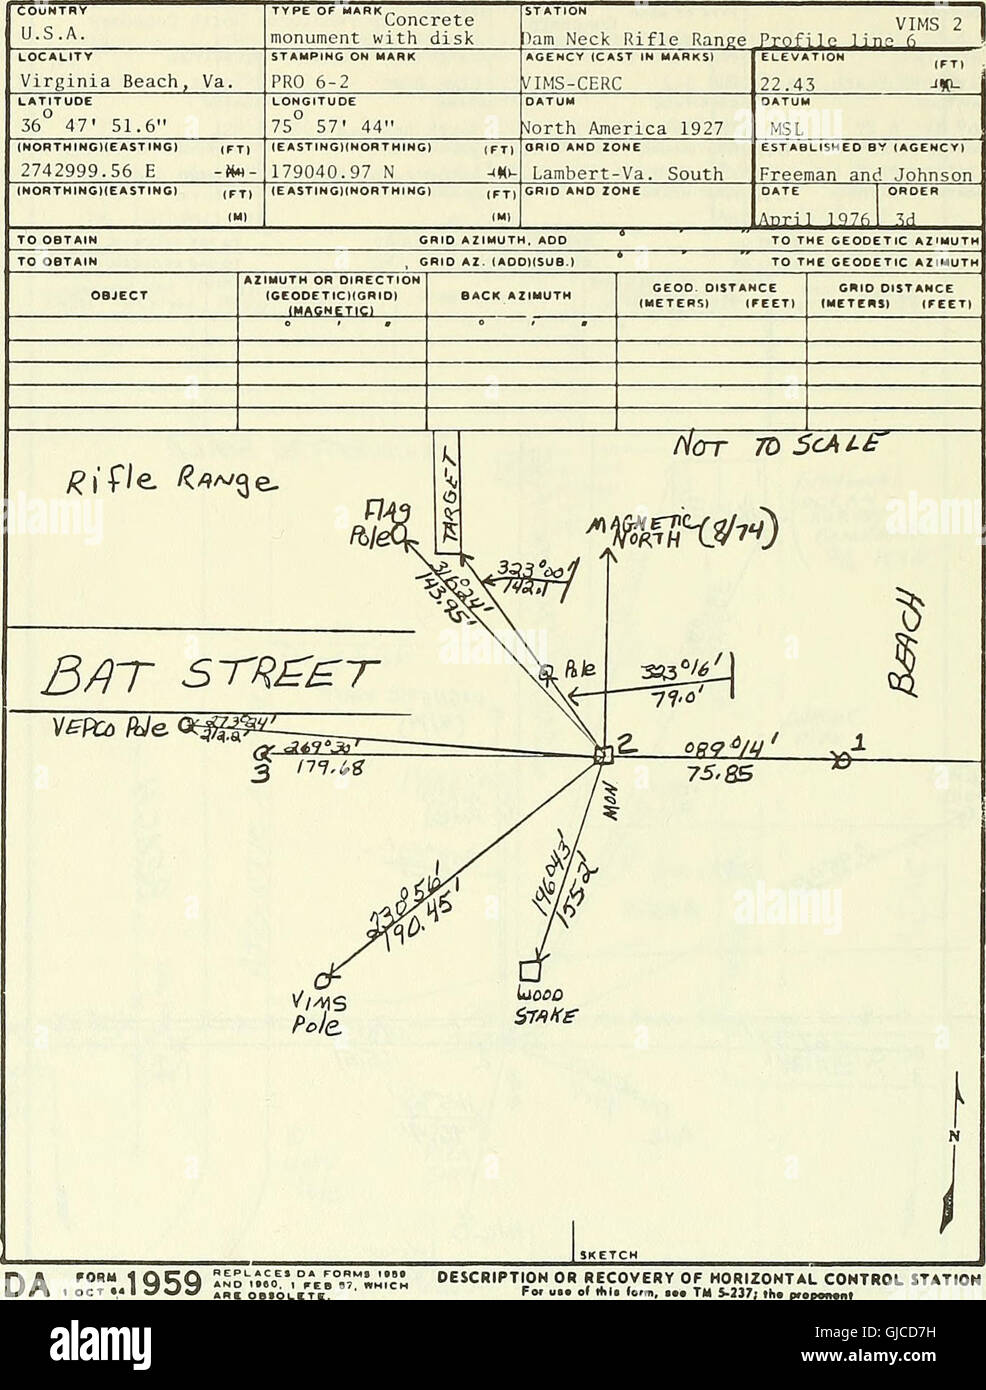 COUNTRY
U.S.A.
TYPE OF MARK Concrete
monument with disk
STATION VIMS 2
Dam Neck Rifle Range Profile line 6
LOCALITY
Virginia Beach, Va.
STAMPING ON MARK
PRO 6-2
AGENCY (CAST IN MARKS)
VIMS-CERC
ELEVATION (FT)
22.43 (M)
LATITUDE
36° 47' 51.6"
LONGITUDE
75° 57' 44"
DATUM
North America 1927
DATUM
MSL
(NORTHING)(EASTING) (FT)
2742999.56 E (M)
(EASTING)(NORTHING) (FT)
179040.97 N (M)
GRID AND ZONE
Lambert-Va. South
ESTABLISHED BY (AGENCY)
Freeman and Johnson
(NORTHING)(EASTING) (FT)
(M)
(EASTING)(NORTHING) (FT)
(M)
GRID AND ZONE
DATE
April 1976
ORDER
3d
TO OBTAIN GRID AZIMUTH, ADD ° ' " TO THE GEODETIC AZIMUTH
TO OBTAIN GRID AZ. (ADD)(SUB.) TO THE GEODETIC AZIMUTH
OBJECT
AZIMUTH OR DIRECTION
(GEODETIC)(GRID)
(MAGNETIC)
BACK AZIMUTH
GEOD. DISTANCE
(METERS) (FEET)
GRID DISTANCE
(METERS) (FEET)
° ' " ° ' "
NOT TO SCALE
Rifle Range
TARGET
Flag
Pole
MAGNETIC
NORTH (8/74)
323°00'
142.1
316°24'
143.95'
BEACH
BAT STREET
Pole
323°16'
79.0'
VEPCO Pole
273°24'
212.2'
269°30'
179.68
3
2
089°14'
75.85
1
MON
196°43'
155.2'
230°56'
190.45'
VIMS
Pole
WOOD
STAKE
N
SKETCH
DA FORM 1959
1 OCT 64
REPLACES DA FORMS 1959
AND 1960, 1 FEB 57, WHICH
ARE OBSOLETE.
DESCRIPTION OR RECOVERY OF HORIZONTAL CONTROL STATION
For use of this form, see TM 5-237; the proponent
alamy
alamy
alamy
alamy
alamy
alamy
Image ID: GJCD7H
www.alamy.com